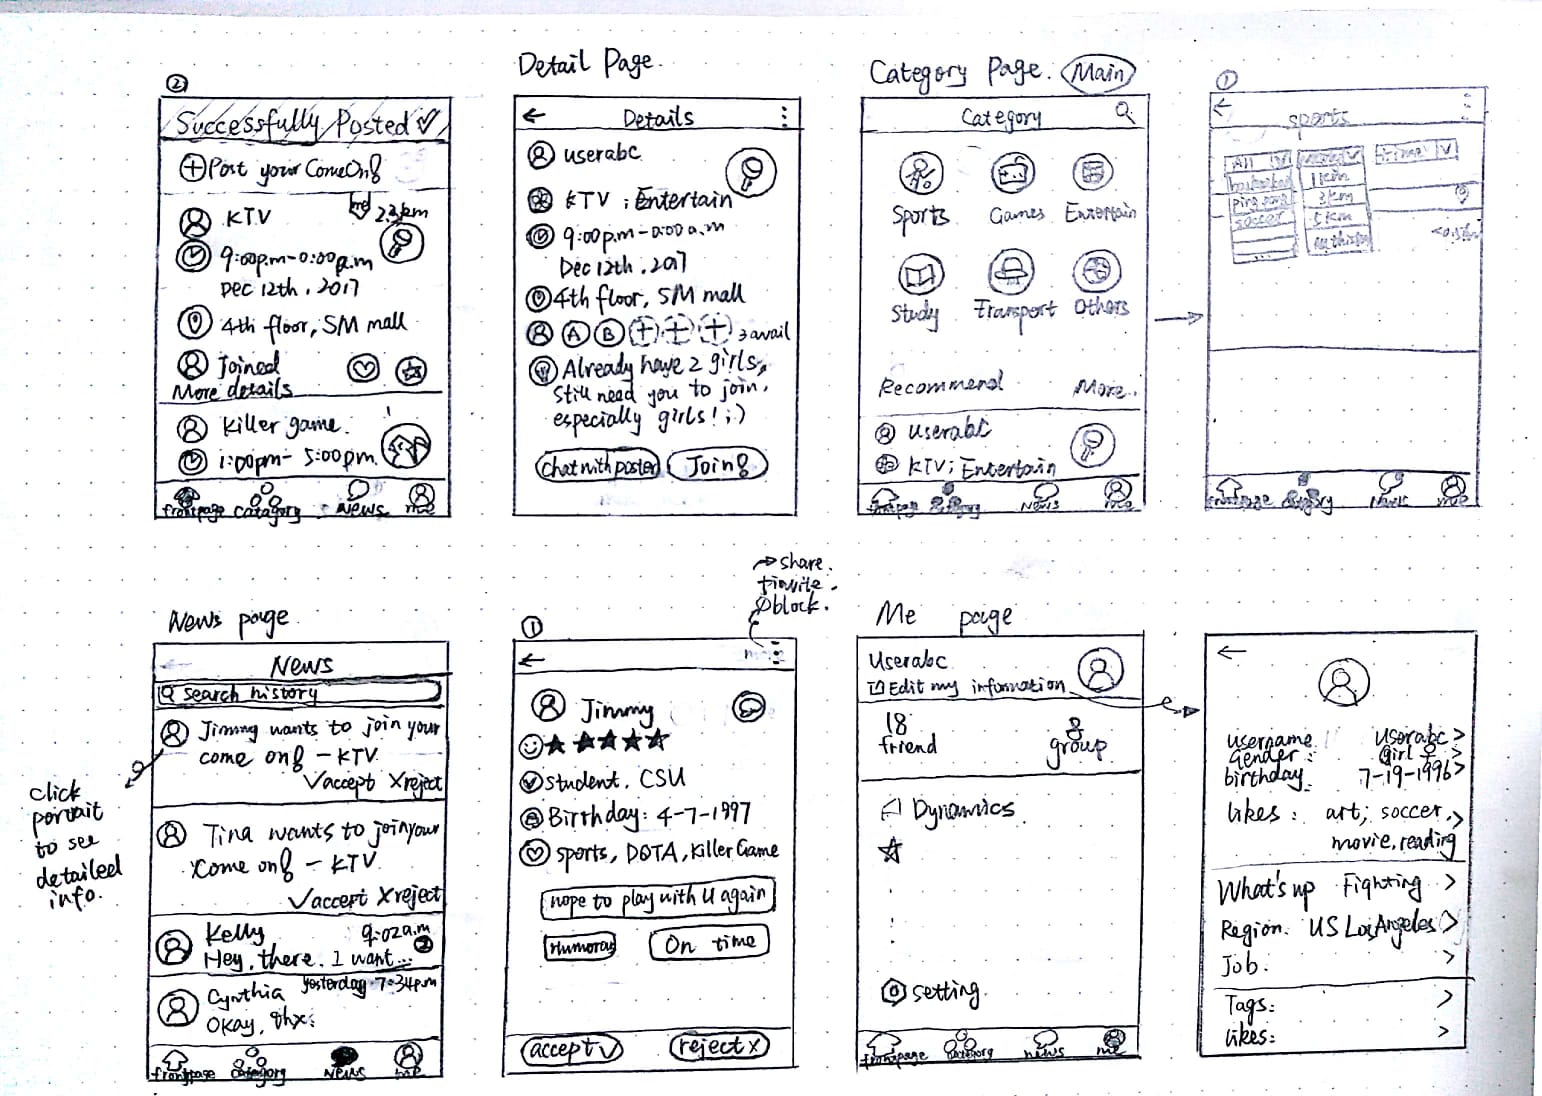 ②
Successfully Posted
Post your ComeOn!
KTV
2.3km
9:00p.m-0:00a.m
Dec 12th, 2017
4th floor, SM mall
Joined
More details
Killer game.
1:00pm- 5:00pm.
frontpage catagory News me
Detail Page.
Details
userabc
KTV ; Entertain
9:00p.m-0:00a.m
Dec 12th, 2017
4th floor, SM mall
A B 3 avail
Already have 2 girls,
still need you to join,
especially girls! ;)
Chat with poster Join!
Category Page. Main
Category
Sports Games Entertain
Study Transport Others
Recommend More..
userabc
KTV; Entertain
frontpage category News me
①
sports
All time
basketball 1km
ping pong 3km
soccer 5km
... anthing
<0.5km
frontpage category News me
News page
News
search history
Jimmy wants to join your
come on! - KTV
accept reject
click
portrait
to see
detailed
info.
Tina wants to join your
come on! - KTV
accept reject
Kelly 9:02a.m
Hey, there. I want... 2
Cynthia yesterday 7:34p.m
Okay, thx.
frontpage category News me
①
share.
+invite.
block.
Jimmy
student, CSU
Birthday: 4-7-1997
sports, DOTA, Killer Game
hope to play with u again
Humoray On time
accept reject
Me page
Userabc
Edit my information
18
friend
group
Dynamics
setting
frontpage category news me
username userabc >
Gender: girl ♀ >
birthday 7-19-1996 >
likes : art; soccer, >
movie, reading
What's up Fighting >
Region. US LosAngeles >
Job. >
Tags: >
likes: >